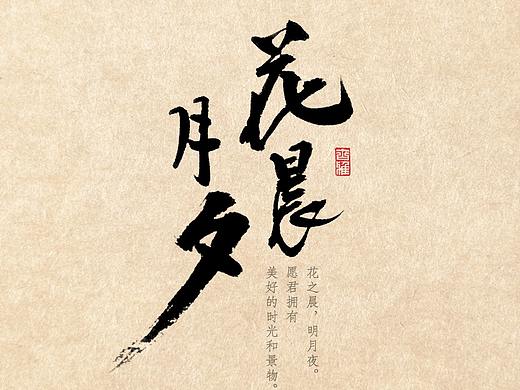 花晨
月夕
花之晨，明月夜。
愿君拥有
美好的时光和景物。